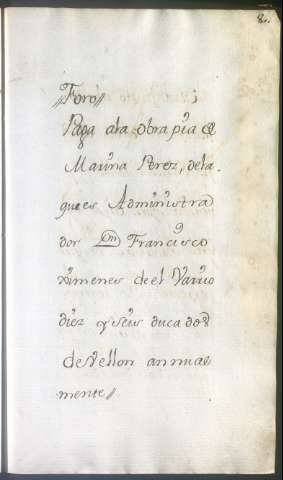 8.
//Foro//
Paga ala obra pia de
Marina Perez, dela
que es Administra
dor Dn Francisco
Ximenes de el Varrio
diez y seis ducados
de vellon annual
mente//